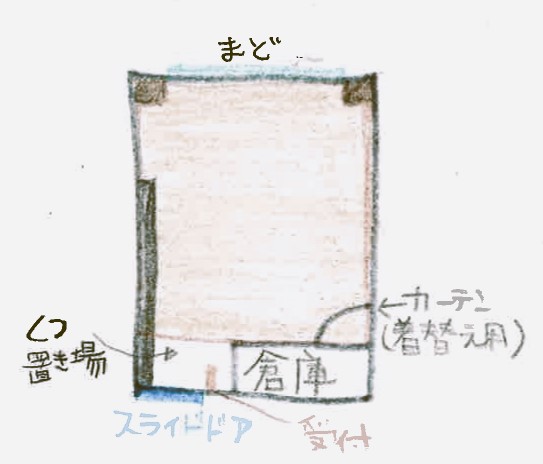 まど
←カーテン
(着替え用)
くつ
置き場
倉庫
スライドドア
受付